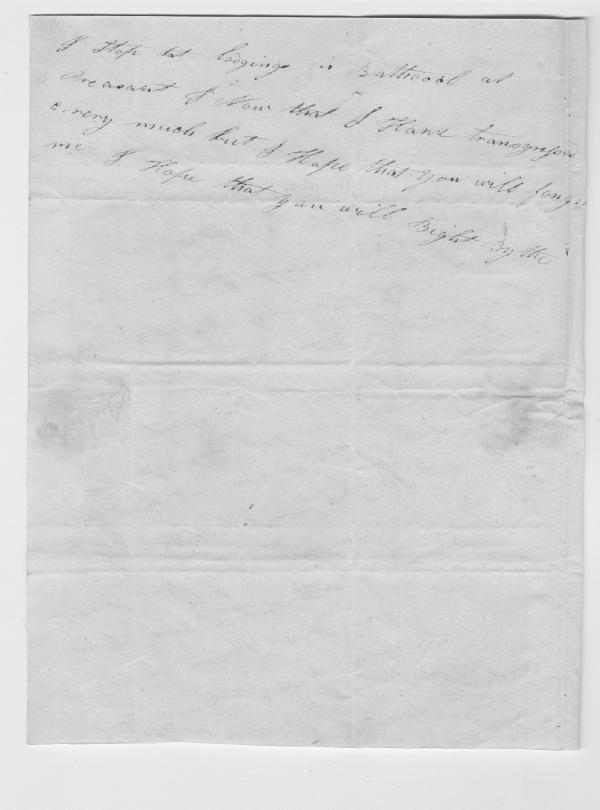 I Hop at lodging in Bathcool at
Preasant I Now that I Have transgresed
very much but I Hope that you will forgive
me I Hope that you will Bight By the